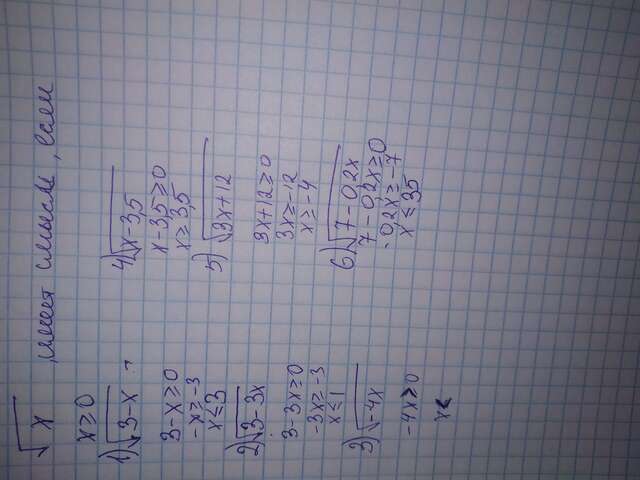 √x , имеет смысл, если
x ≥ 0
1) √3-x
3-x ≥ 0
-x ≥ -3
x ≤ 3
2) √3-3x
3-3x ≥ 0
-3x ≥ -3
x ≤ 1
3) √-4x
-4x ≥ 0
x <
4) √x-3,5
x-3,5 ≥ 0
x ≥ 3,5
5) √3x+12
3x+12 ≥ 0
3x ≥ -12
x ≥ -4
6) √7-0,2x
7-0,2x ≥ 0
-0,2x ≥ -7
x ≤ 35